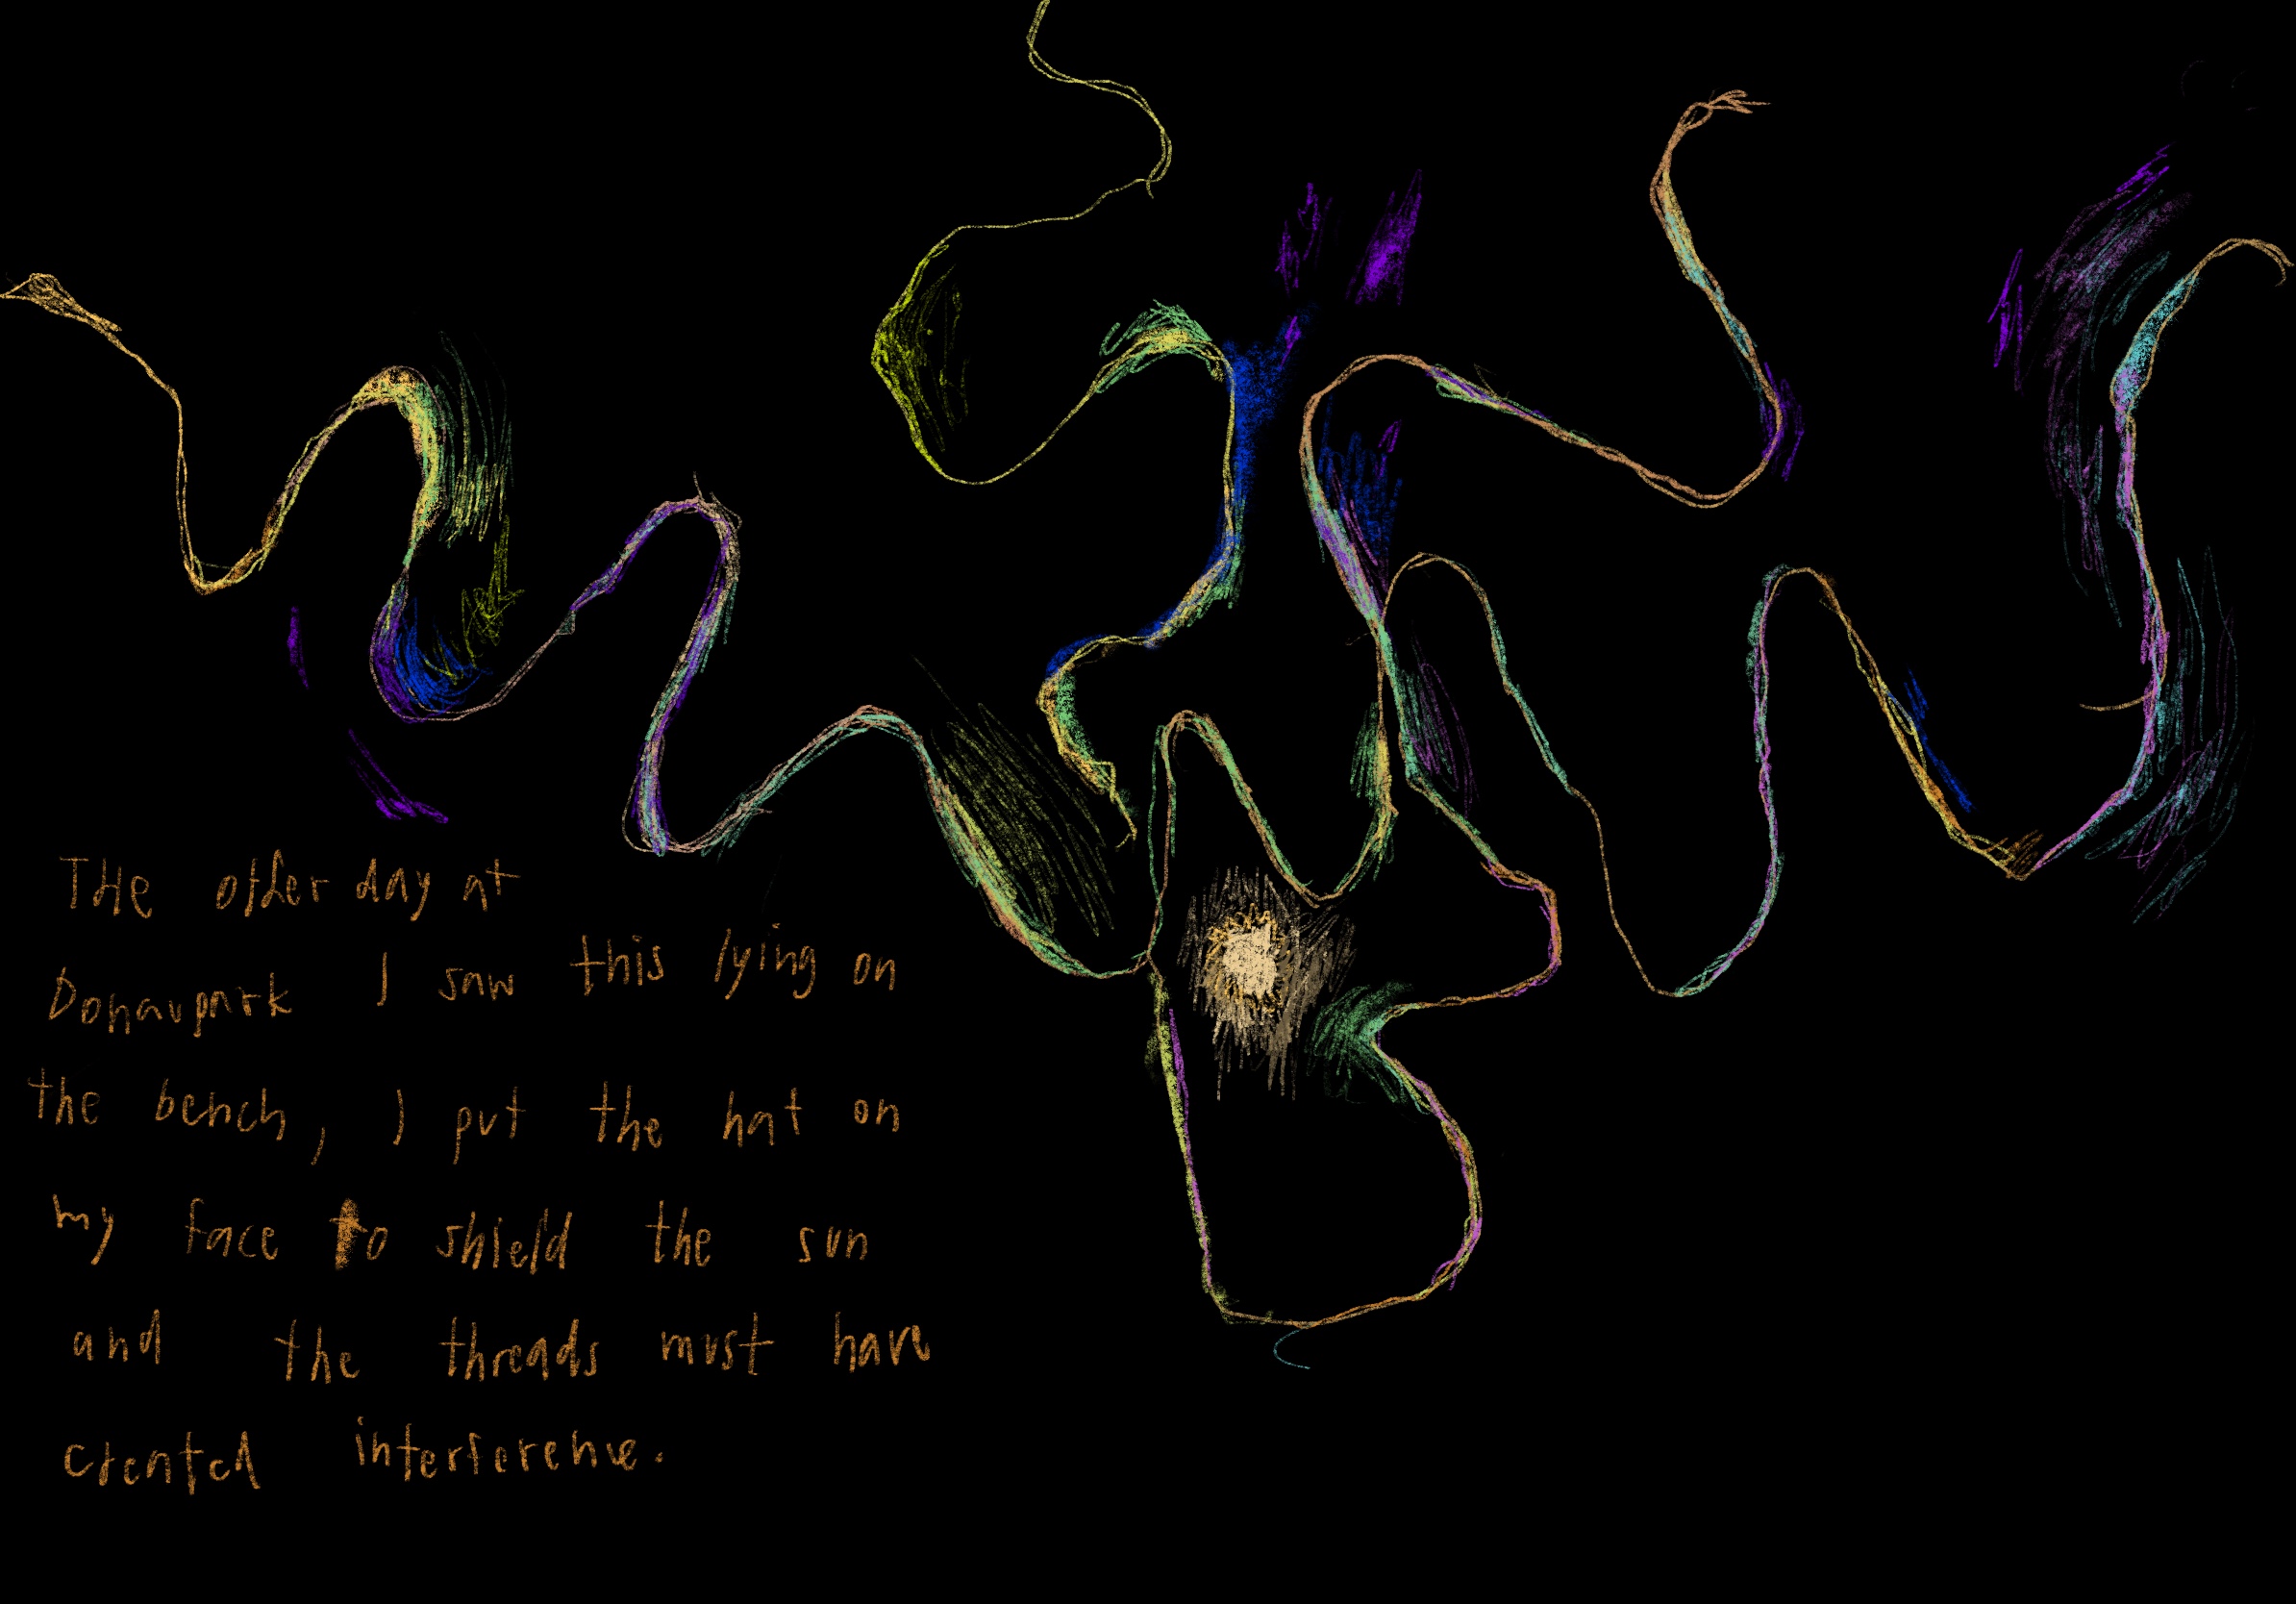 THe other day at
Donaupark I saw this lying on
the bench, I put the hat on
my face to shield the sun
and the threads must have
created interference.